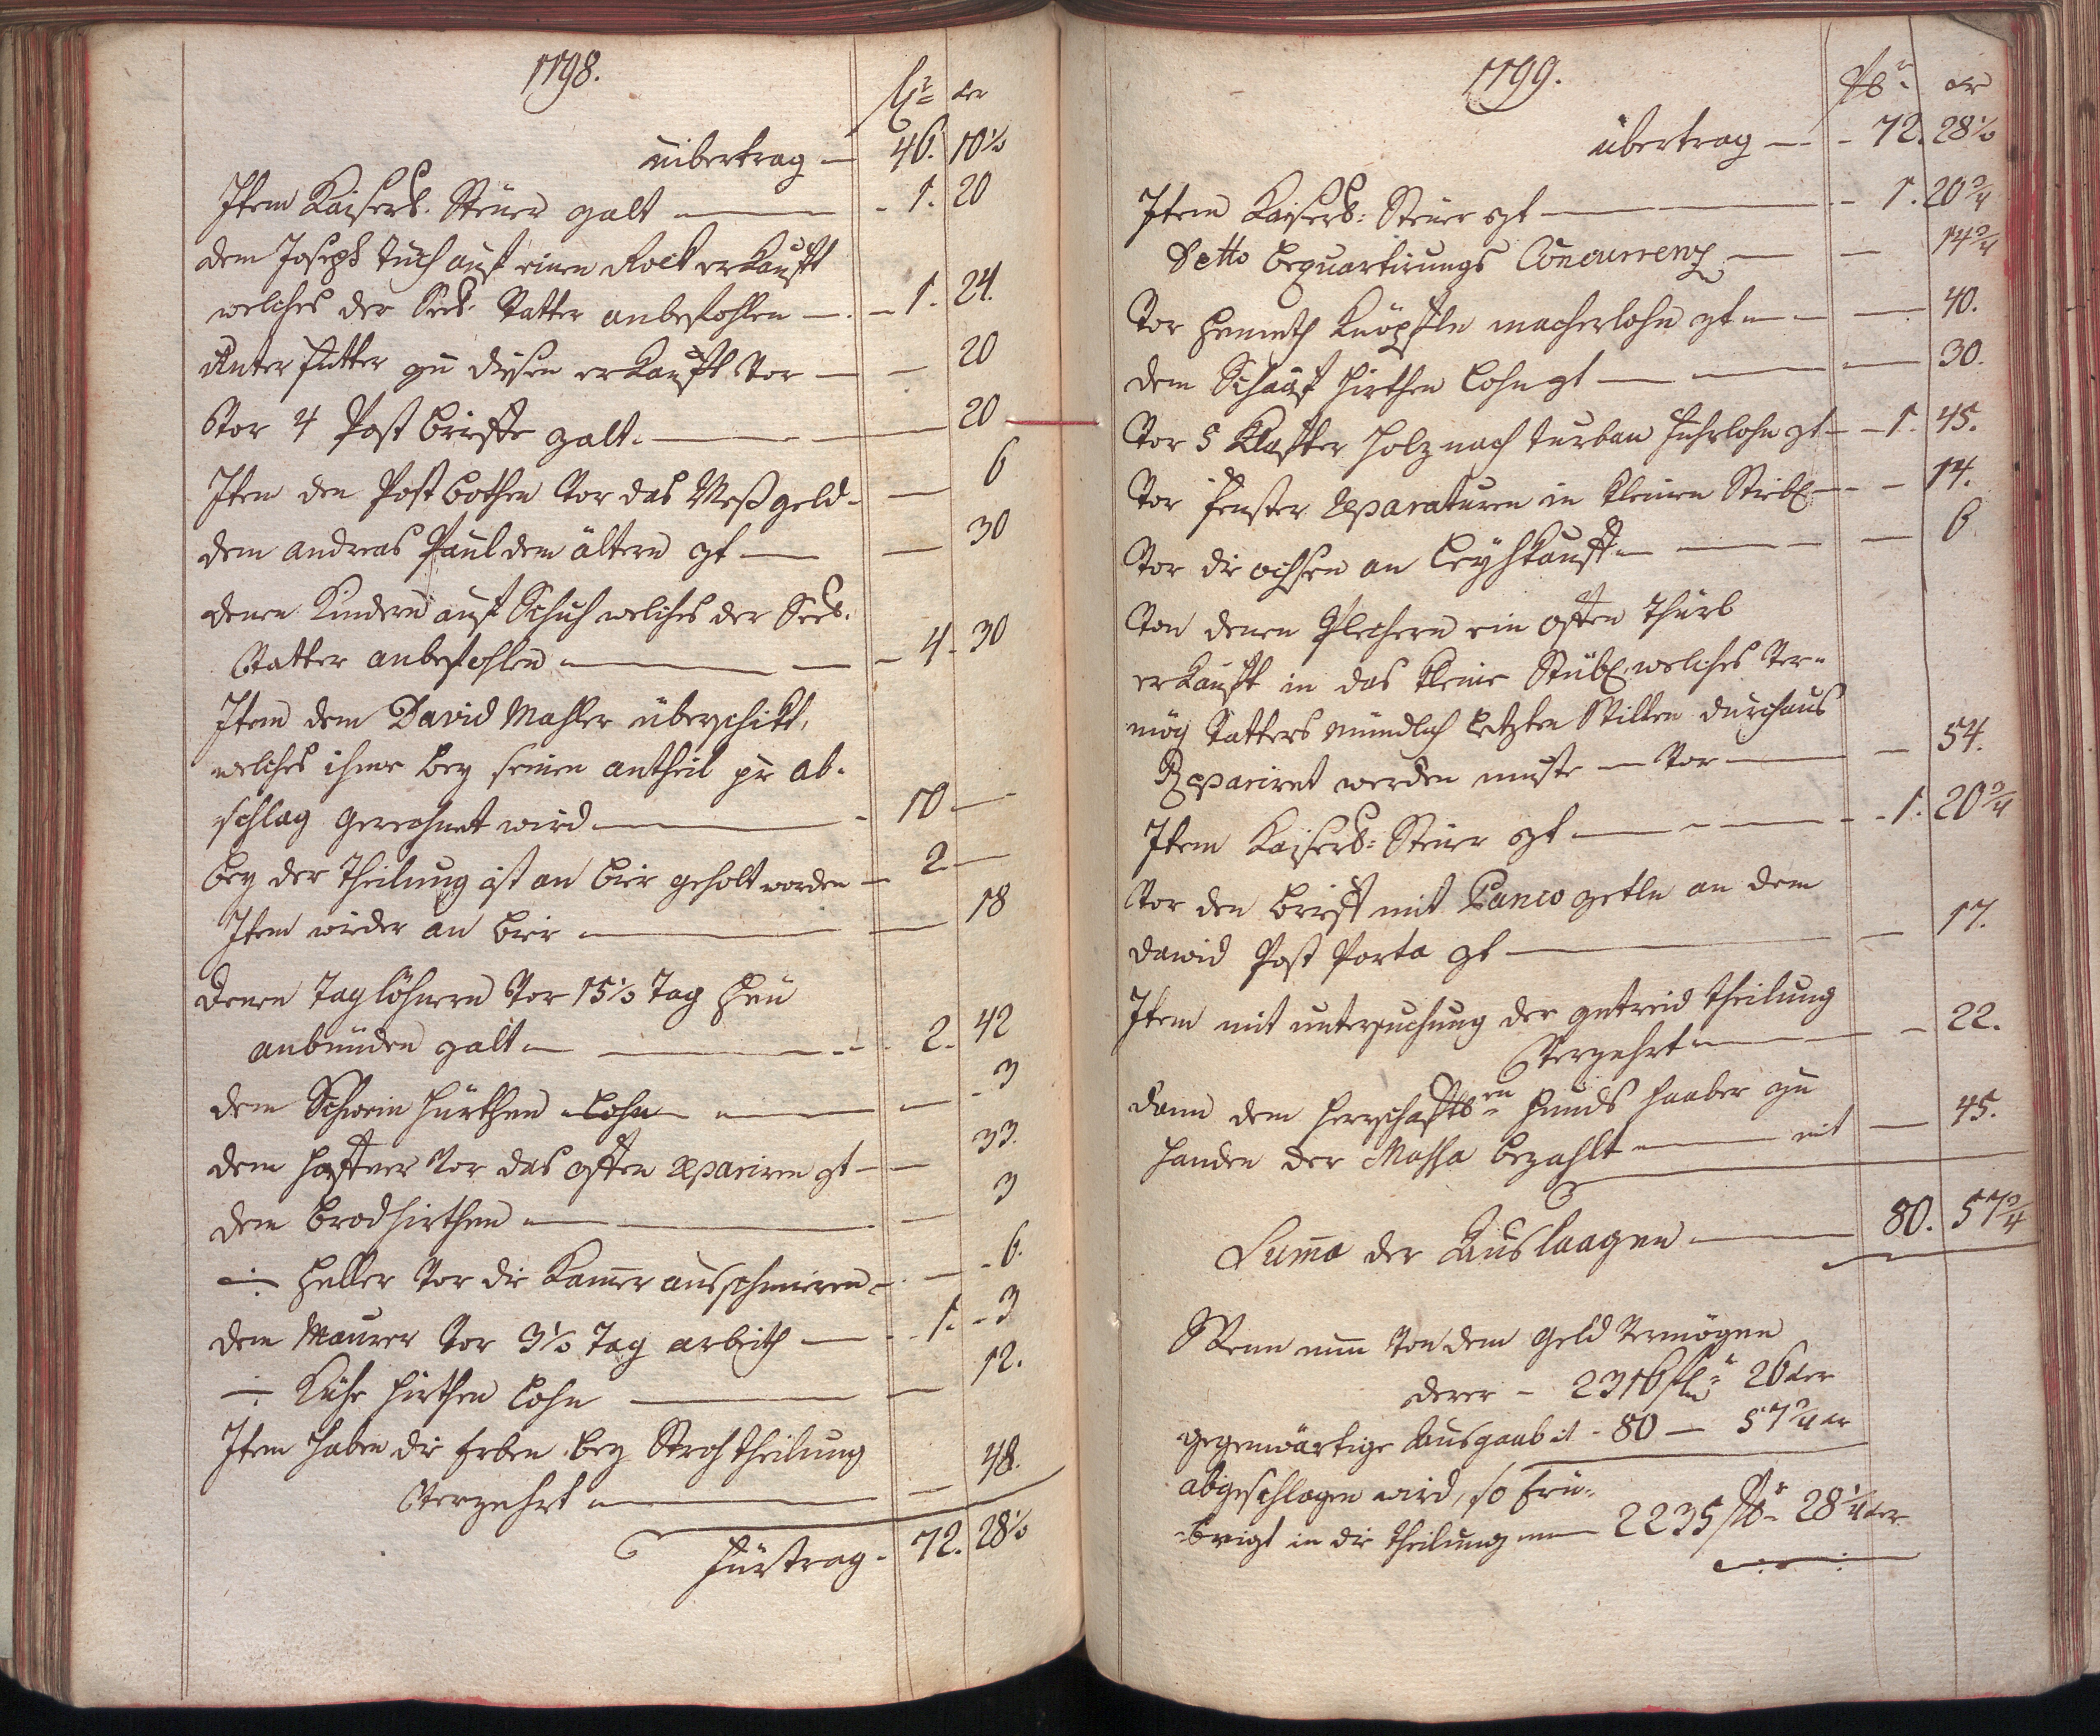 1798.
fl: xr
übertrag — 46. 10½
Item Kaiserl. Steüer zalt — 1. 20
dem Joseph tuch auf einen Rock erkauft
welches der Seel. Vatter anbefohlen — 1. 24.
Unterfutter zu diesen erkauft vor — 20
Vor 4 Post briefe zalt. — 20
Item den Post bothen vor das Meßgeld — 6
dem andreas Paul dem ältern zt — 30
denen Kindern auf Schuh welches der Seel.
Vatter anbefohlen — 4. 30
Item dem David Mahler überschikt,
welches ihme bey seinen antheil pr ab-
schlag gerechnet wird — 10 —
bey der Theilung ist an bier geholt worden — 2 —
Item wieder an bier — 18
Denen Taglöhnern vor 15½ Tag Heu
anbünden zalt — 2. 42
dem Schwein hürthen Lohn — 3
dem Haffner vor das offen repariren zt — 33.
dem brodhirthen — 3
÷ Heller vor die Kamer ausschmieren — 6.
dem Maurer vor 3½ Tag arbeith — 1. 3
÷ Kühe hirthen Lohn — 12.
Item haben die Erben bey Stroh theilung
Verzehrt — 48.
Fürtrag. 72. 28½
1799.
fl: xr
übertrag — 72. 28½
Item Kaiserl: Steüer zt — 1. 20¾
Detto bequartirungs Concurrenz — 14¾
Vor Hemeth Knöpfln macherlohn zt — 40.
dem Schaaf hirthen Lohn zt — 30.
Vor 5 Klafter Holz nach turban Fuhrlohn zt — 1. 45.
Vor Fenster reparaturen in kleinen Stiebl — 14.
Vor die ochsen an Leyhkauf — 6
Von denen Plechern ein offen Thürl
erkauft in das kleine Stübl, welches ver-
mög Vatters mündlich letzten Willen durchaus
Repariret werden muste — vor — 54.
Item Kaiserl: Steüer zt — 1. 20¾
Vor den brief mit Banco zetln an dem
David Post Porta zt — 17.
Item mit untersuchung der getreid theilung
Verzehrt — 22.
dann dem herrschaftlen Hunds haaber zu
handen der Massa bezahlt — mit — 45.
Suma der Auslaagen — 80. 57¾
Wenn nun von dem Geld Vermögen
derer — 2316 fl: 26 xer
gegenwärtige Ausgaab mit 80 — 57¾ xr
abgeschlagen wird, so Erü-
brigt in die theilung nun — 2235 fl: 28¼ xer